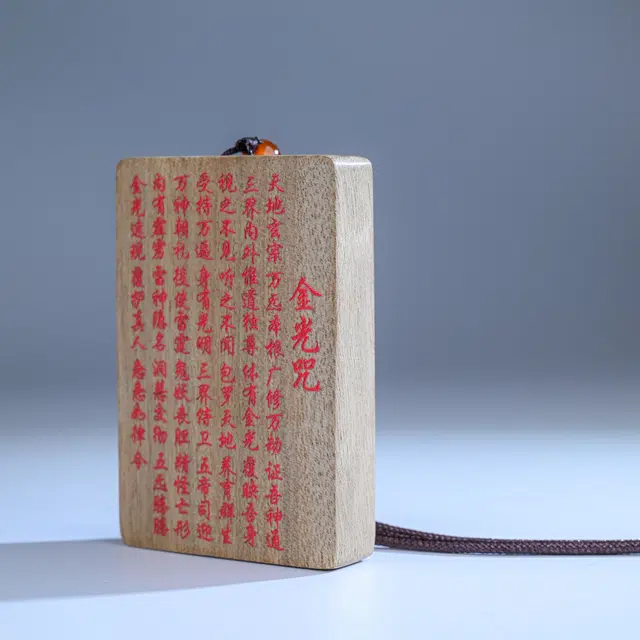 金光咒
天地玄宗万炁本根广修万劫证吾神通
三界内外惟道独尊体有金光覆映吾身
视之不见听之不闻包罗天地养育群生
受持万遍身有光明三界侍卫五帝司迎
万神朝礼役使雷霆鬼妖丧胆精怪亡形
内有霹雳雷神隐名洞慧交彻五炁腾腾
金光速现覆护真人急急如律令